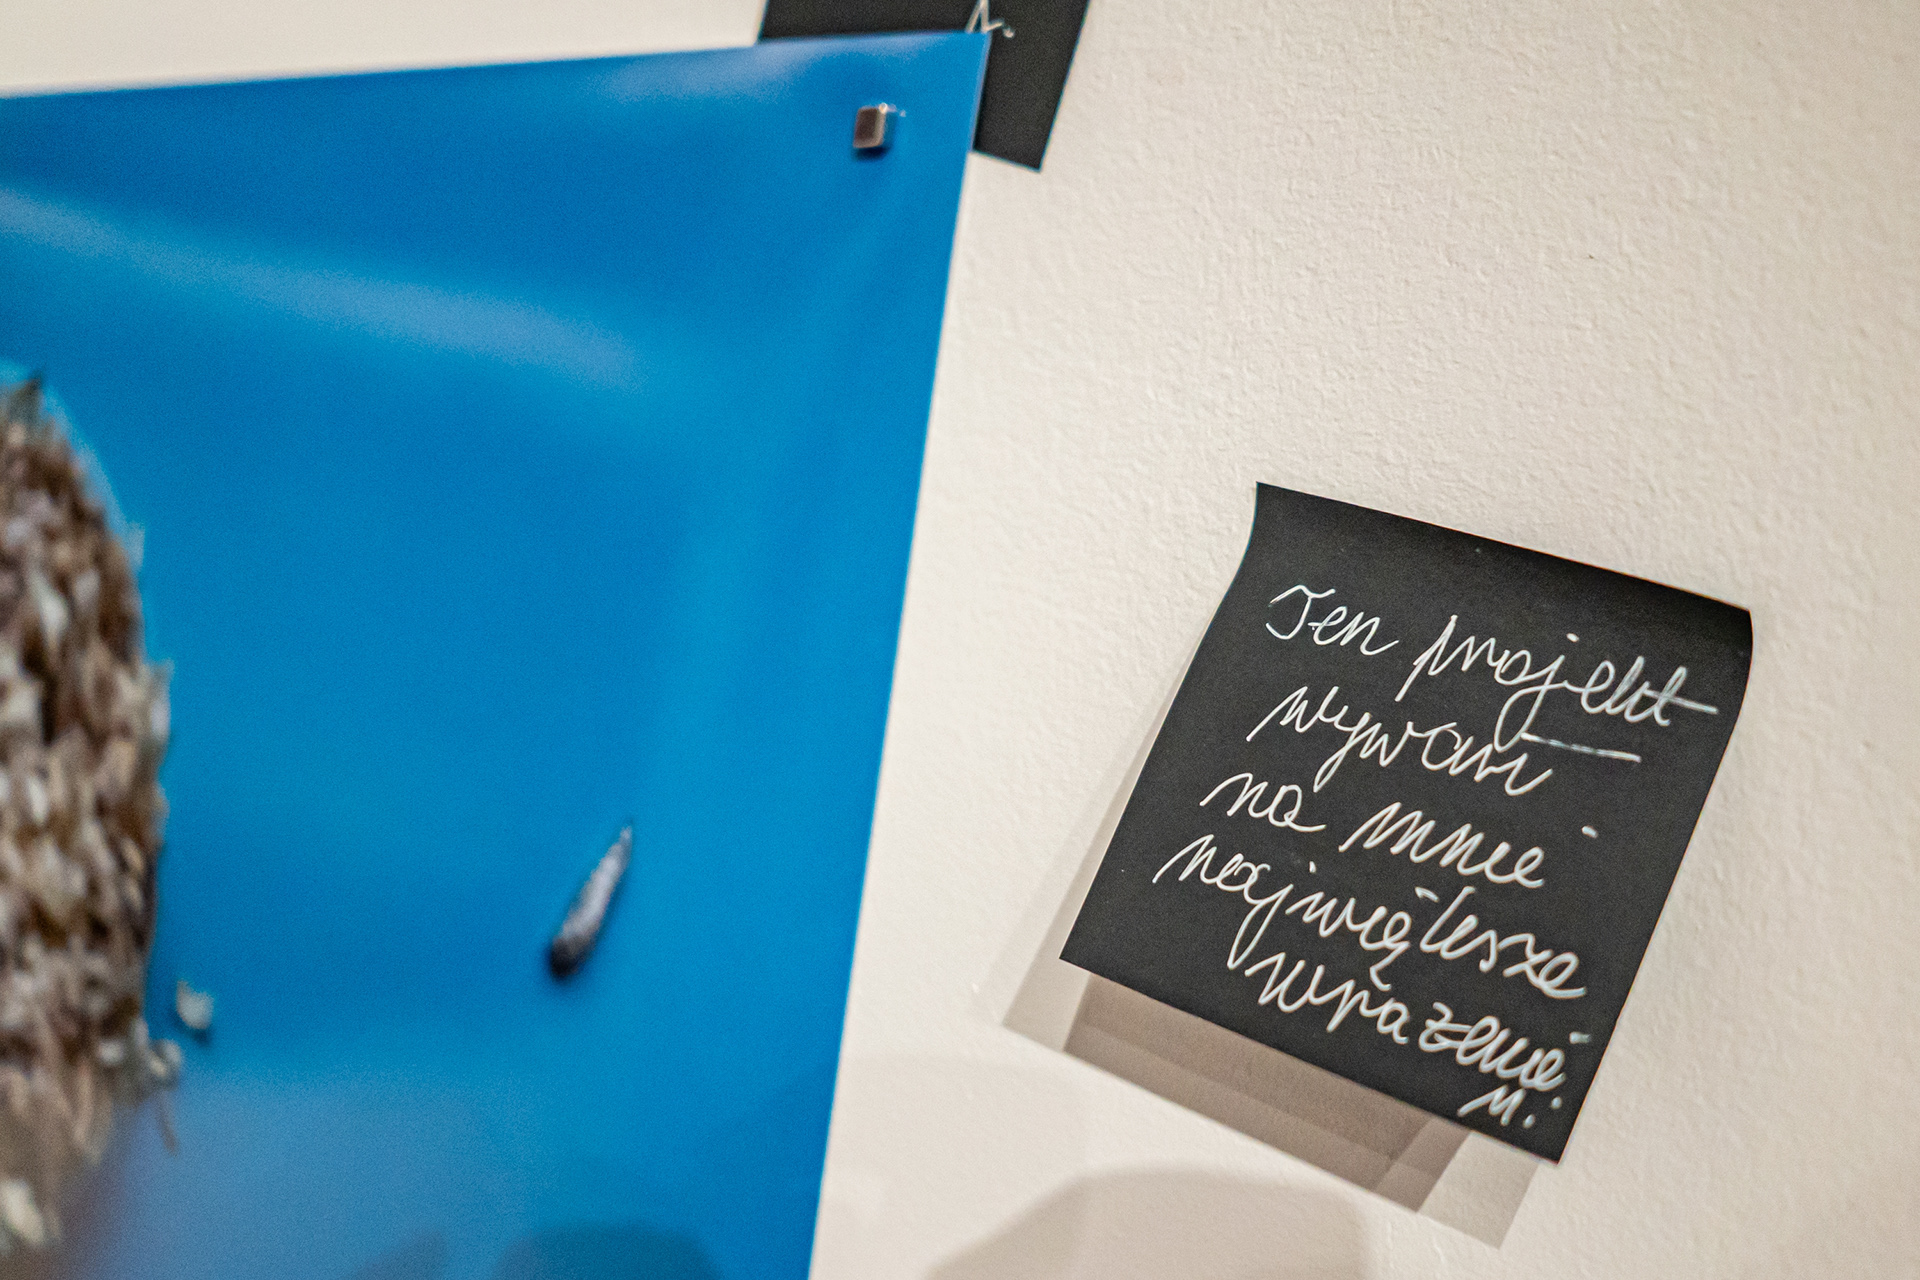 Ten projekt
wywarł
na mnie
największe
wrażenie
M.